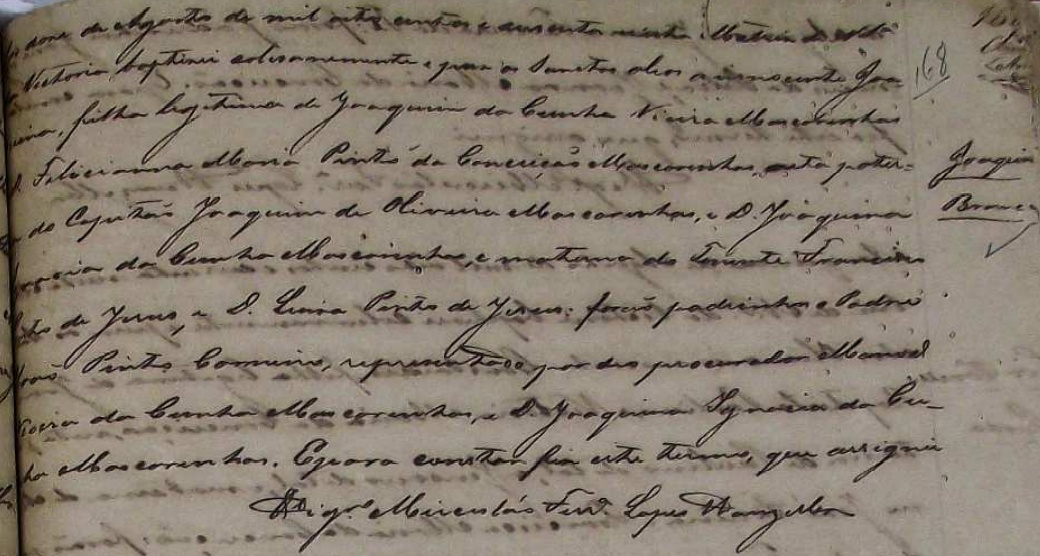 doze de Agosto de mil oito centos e sessenta nesta Matriz de
Victoria, baptizei solemnemente e puz os Santos oleos a innocente Joa-
quina, filha legitima de Joaquim da Cunha Vieira Mascarenhas
D. Feliscianna Maria Pinto da Conceição Mascarenhas, neta pater-
do Capitão Joaquim de Oliveira Mascarenhas, e D. Joaquina
Ignacia da Cunha Mascarenhas, e materna do Tenente Francisco
Pinto de Jesus, e D. Luisa Pinto de Jesus: forão padrinhos o Padre
João Pinto Carneiro, representado por seu procurador Manoel
Vieira da Cunha Mascarenhas, e D. Joaquina Ignacia da Cu-
nha Mascarenhas. E para constar fiz este termo, que assignei
Vigr.º Lopes
168
Joaquin
Branca